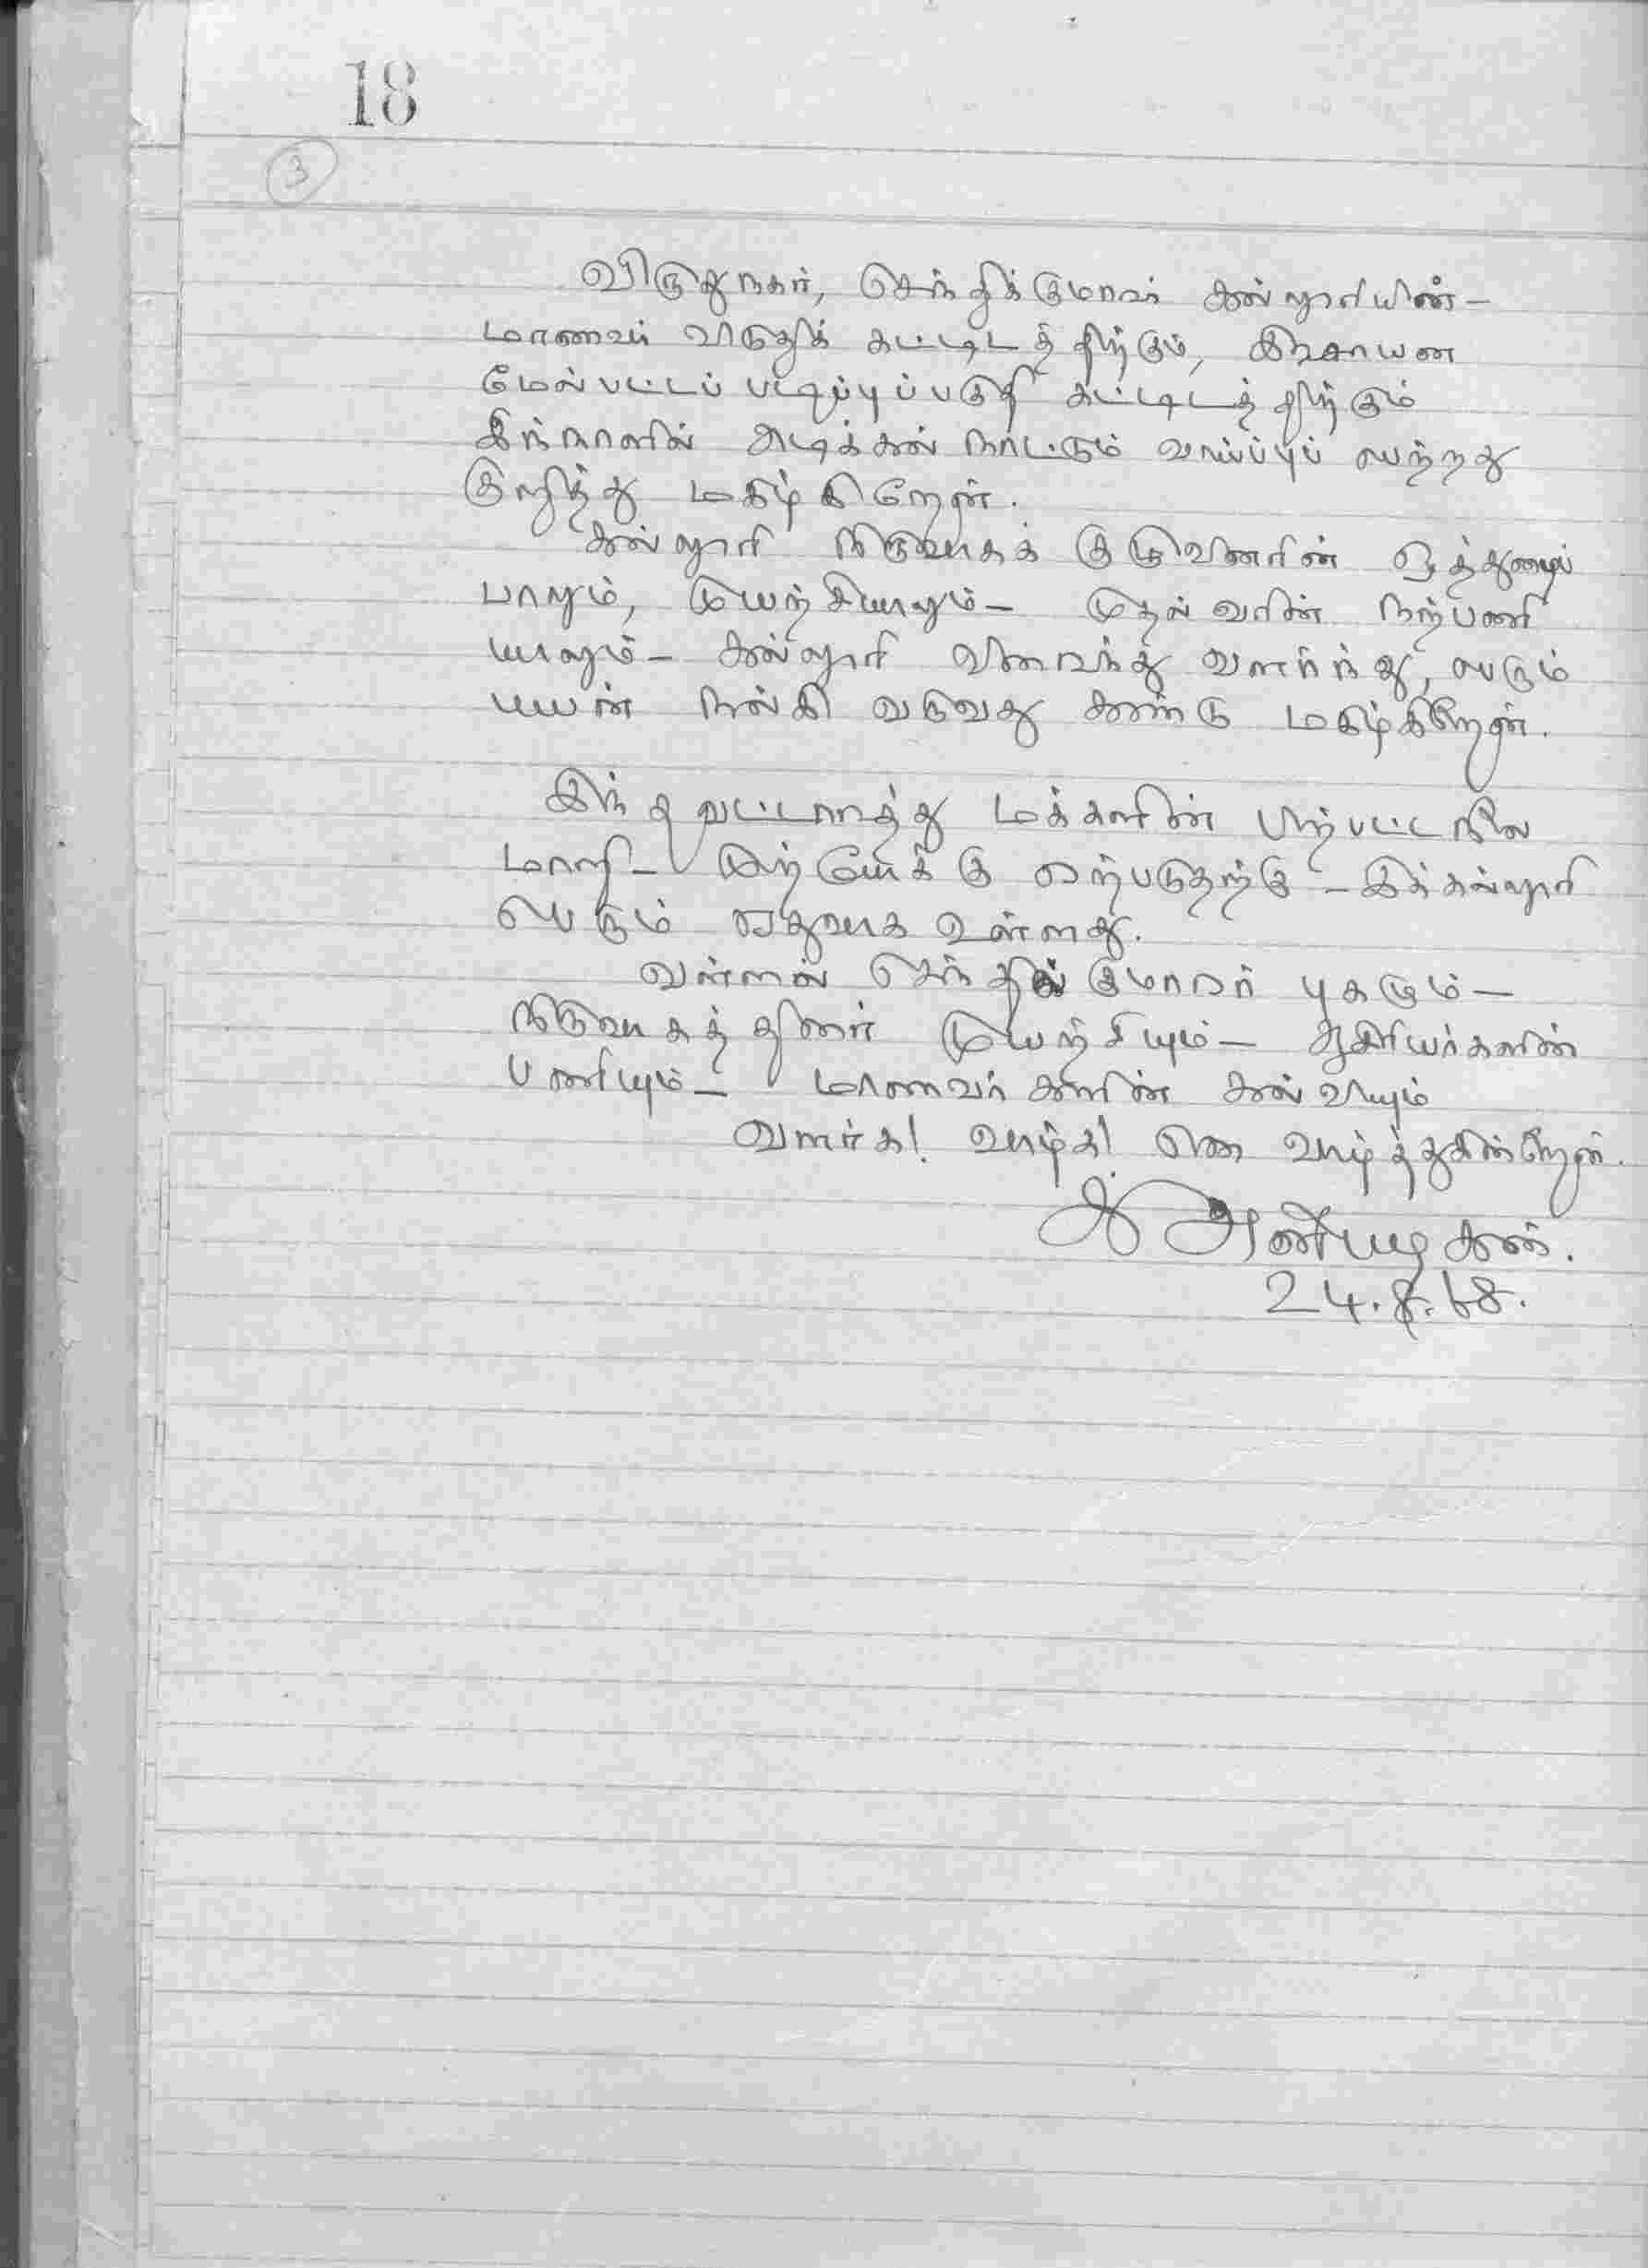 18
3
விருதுநகர், செந்திக்குமார் கல்லூரியின் -
மாணவர் விடுதிக் கட்டிடத்திற்கும், இரசாயன
மேல்பட்டப் படிப்புப்பகுதி கட்டிடத்திற்கும்
இந்நாளில் அடிக்கல் நாட்டும் வாய்ப்புப் பெற்றது
குறித்து மகிழ்கிறேன்.
கல்லூரி நிருவாகக் குழுவினரின் ஒத்துழைப்
பாலும், முயற்சியாலும் - முதல்வரின் நற்பணி
யாலும் - கல்லூரி விரைந்து வளர்ந்து, பெரும்
பயன் நல்கி வருவது கண்டு மகிழ்கிறேன்.
இந்த வட்டாரத்து மக்களின் பிற்பட்டநிலை
மாறி - முற்போக்கு ஏற்படுதற்கு - இக்கல்லூரி
பெரும் ஏதுவாக உள்ளது.
வள்ளல் செந்திக்குமாரர் புகழும் -
நிருவாகத்தினர் முயற்சியும் - ஆசிரியர்களின்
பணியும் - மாணவர்களின் கல்வியும்
வளர்க! வாழ்க! என வாழ்த்துகின்றேன்.
க அன்பழகன்.
24.8.68.